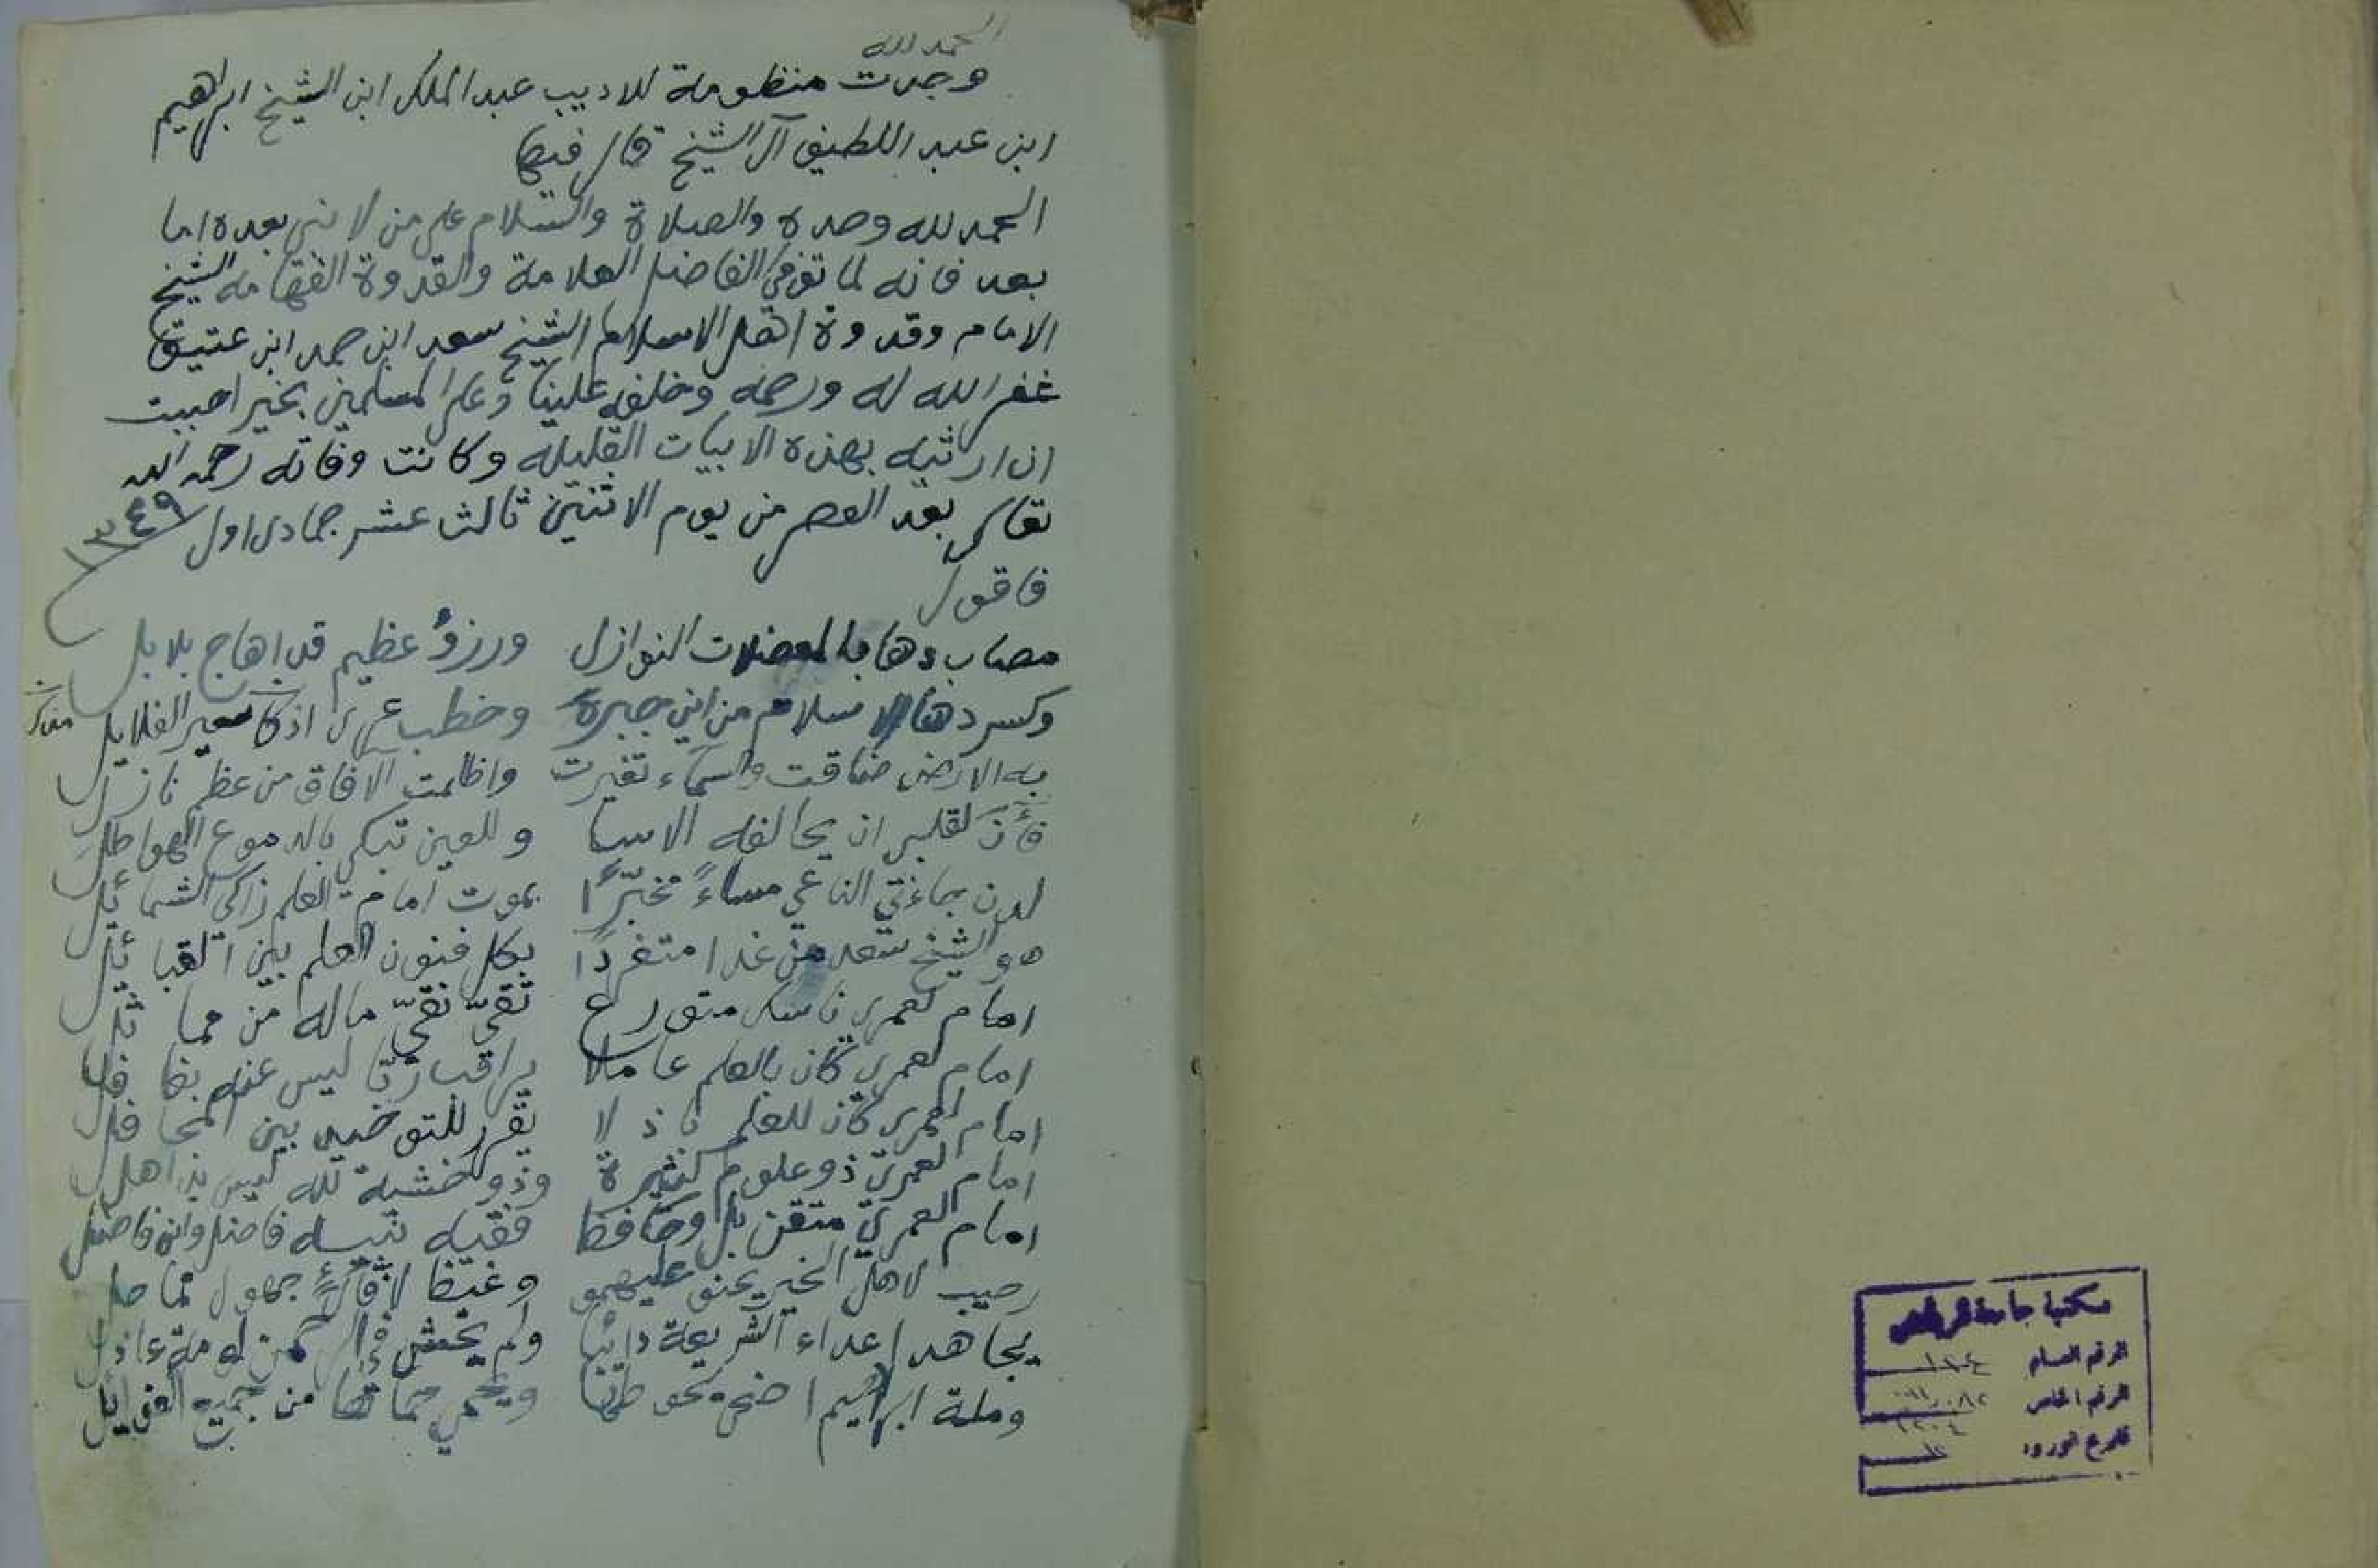 الحمد لله
وجدت منظومة للاديب عبد الملك ابن الشيخ ابراهيم
ابن عبد اللطيف آل الشيخ قال فيها
الحمد لله وحده والصلاة والسلام على من لا نبي بعده اما
بعد فانه لما توفي الفاضل العلامة والقدوة الفهامه الشيخ
الامام وقدوة اهل الاسلام الشيخ سعد ابن حمد ابن عتيق
غفر الله له ورحمه وخلفه علينا وعلى المسلمين بخير احببت
ان ارثيه بهذه الابيات القليله وكانت وفاته رحمه الله
تعالى بعد العصر من يوم الاثنين ثالث عشر جمادى اول ١٣٤٩
فاقول
مصاب دها بالمعضلات النوازل ورزؤ عظيم قد اهاج بلابل
وكسر دها الاسلام من اين جبره وخطب عرى اذكا سعير الغلايل
به الارض ضاقت والسماء تغيرت واظلمت الافاق من عظم نازل
فأن لقلبي ان يحالفه الاسا وللعين تبكي بالدموع الهواطل
لدن جاءني الناعي مساءً مخبّرًا بموت امام العلم زاكي الشمائل
هو الشيخ سعد من غدا متفردًا بكل فنون العلم بين القبائل
امام لعمري ناسك متورع تقيّ نقيّ ماله من مماثل
امام لعمري كان بالعلم عاملا يراقب ربا ليس عنه بغافل
امام لعمري كان للعلم باذلا يقرر للتوحيد بين المحافل
امام لعمري ذو علوم كثيرة وذو خشية لله ليس بذاهل
امام لعمريّ متقن بل وحافظ فقيه نبيه فاضل وابن فاضل
رحيب لاهل الخير يحنو عليهمو وغيظا لأفاك جهول مماحل
يجاهد اعداء الشريعة دائبا ولم يخش في الرحمن لومة عاذل
وملة ابراهيم اضحى يحوطها ويحمي حماها من جميع الغوايل
مكتبة جامعة الرياض
الرقم العام
الرقم الخاص
تاريخ الورود